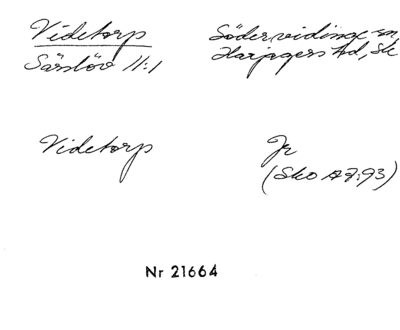 Videtorp
Särslöv 11:1
Södervidinge sn,
Harjagers hd, Sk
Videtorp
Jr
(Sko A7:93)
Nr 21664